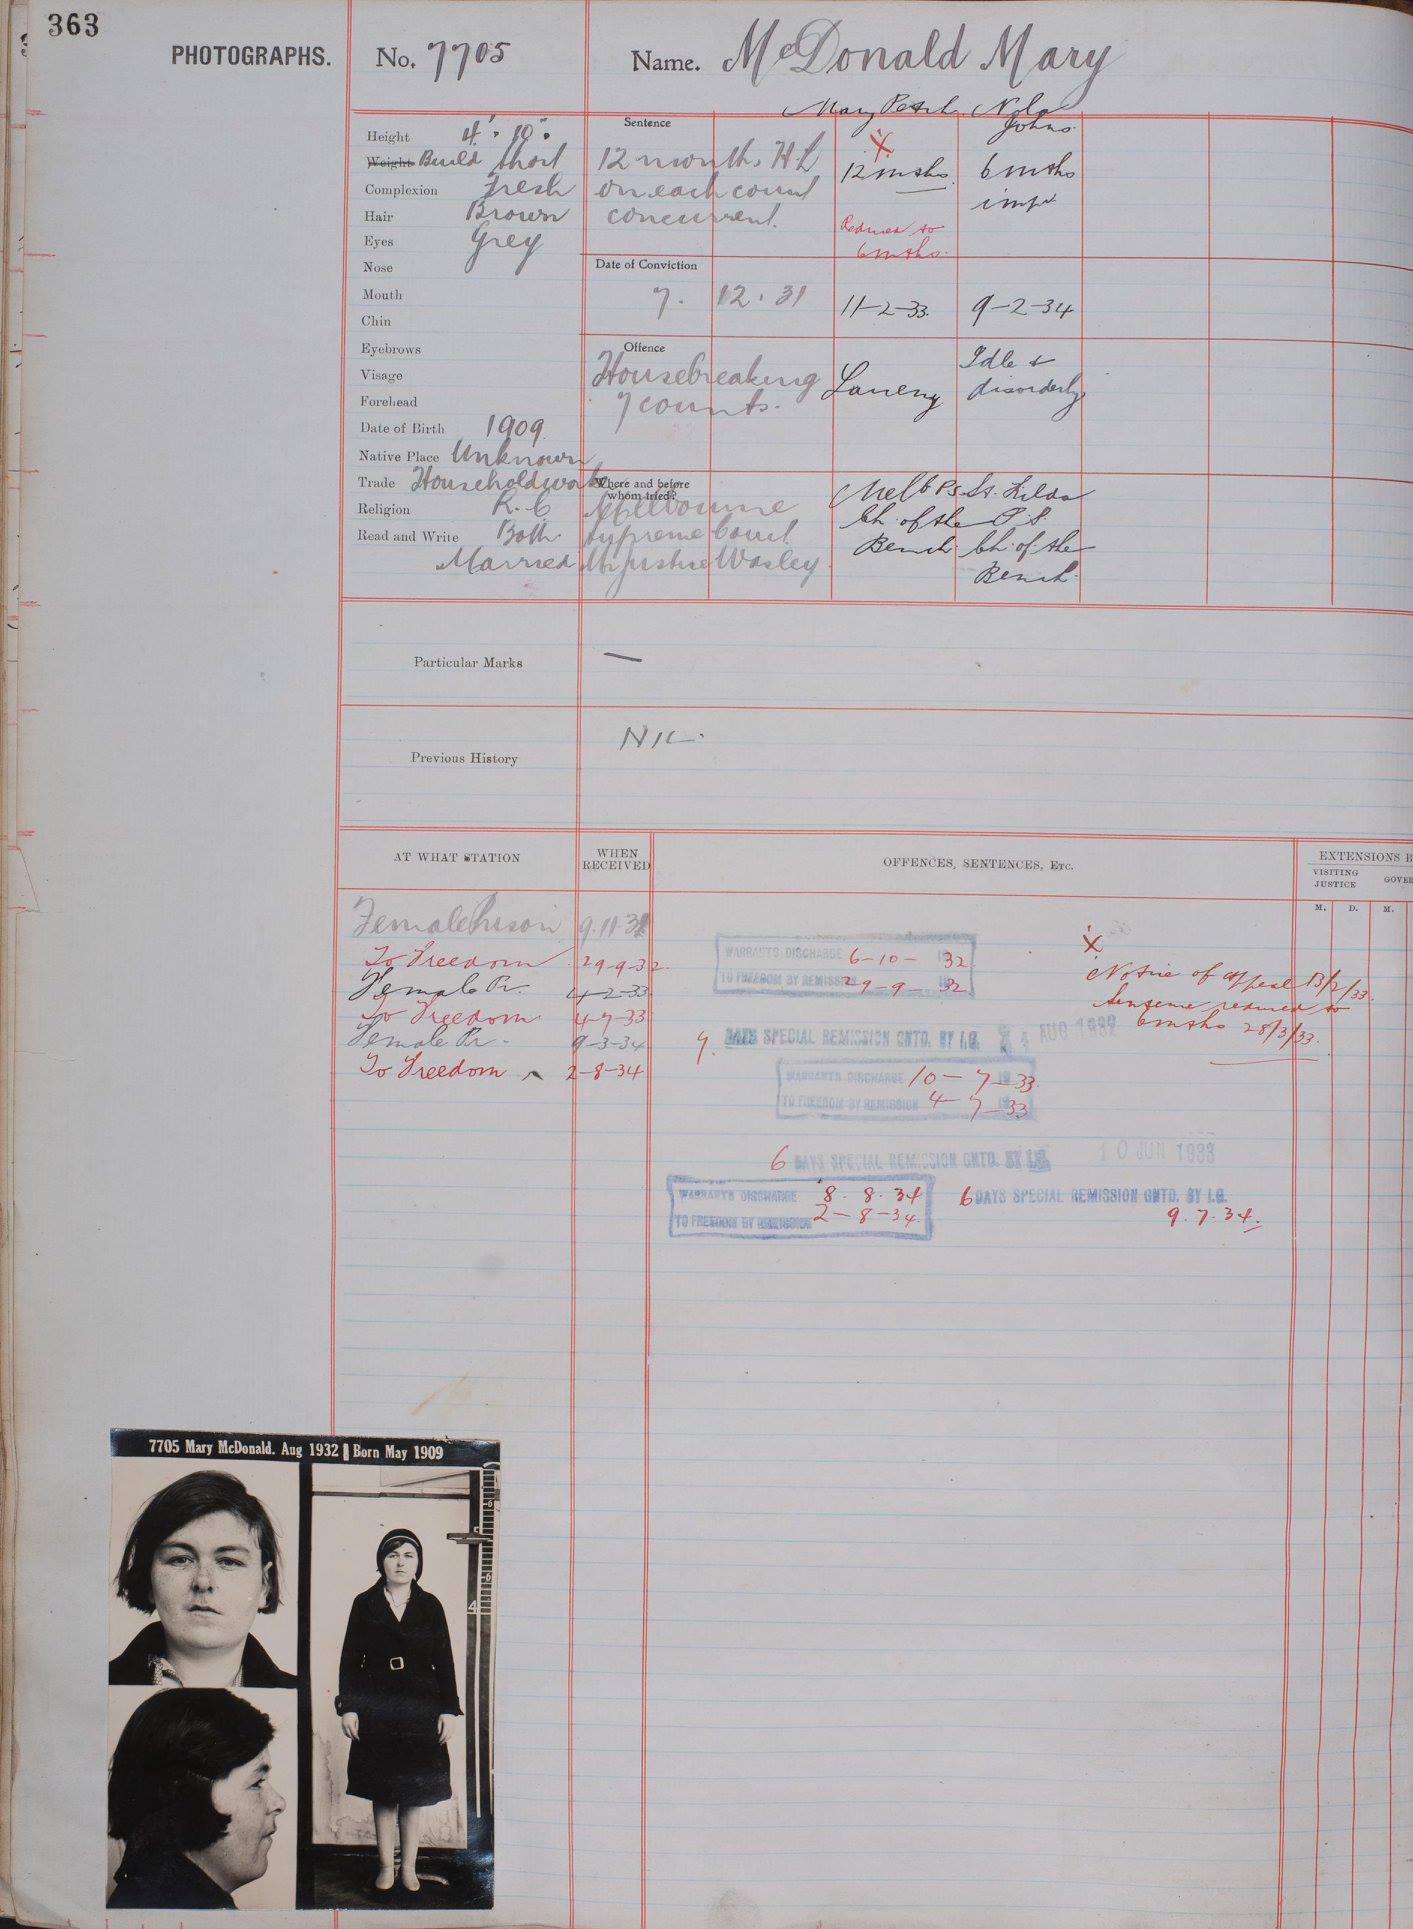 363
PHOTOGRAPHS.
No. 7705
Name. McDonald Mary
Mary Petch. Nola Johns.
Height 4'. 10".
Weight Build Short
Complexion Fresh
Hair Brown
Eyes Grey
Nose
Mouth
Chin
Eyebrows
Visage
Forehead
Date of Birth 1909
Native Place Unknown
Trade Householdworks
Religion R. C
Read and Write Both
Married
Sentence
12 months H L
on each count
concurrent.
X
12 mths.
Reduced to
6 mths.
6 mths
impt
Date of Conviction
7. 12. 31
11-2-33.
9-2-34
Offence
Housebreaking
7 counts.
Larceny
Idle &
disorderly
Where and before
whom tried?
Melbourne
Supreme Court
Mr Justice Wasley
Melb P.S.
Ch. of the
Bench.
St. Kilda
P.S.
Ch. of the
Bench.
Particular Marks
—
Previous History
NIL.
AT WHAT STATION
WHEN RECEIVED
OFFENCES, SENTENCES, ETC.
EXTENSIONS B
VISITING JUSTICE
GOVER
M. D. M.
Female Prison 9.11.31
To Freedom 29-9-32.
Female Pr. 4-2-33
To Freedom. 4-7-33
Female Pr. 9-3-34
To Freedom 2-8-34
WARRANTS DISCHARGE 6-10- 1932
TO FREEDOM BY REMISSION 29-9- 1932
X
Notice of appeal 13/2/33.
Sentence reduced to
6 mths 28/3/33.
7. DAYS SPECIAL REMISSION GNTD. BY I.G. 24 AUG 1932
WARRANTS DISCHARGE 10-7-1933.
TO FREEDOM BY REMISSION 4-7-1933
6 DAYS SPECIAL REMISSION GNTD. BY I.G. 10 JUN 1933
WARRANTS DISCHARGE 8. 8. 34
TO FREEDOM BY REMISSION 2-8-34.
6 DAYS SPECIAL REMISSION GNTD. BY I.G.
9. 7. 34.
7705 Mary McDonald. Aug 1932 Born May 1909
6
5
6
4